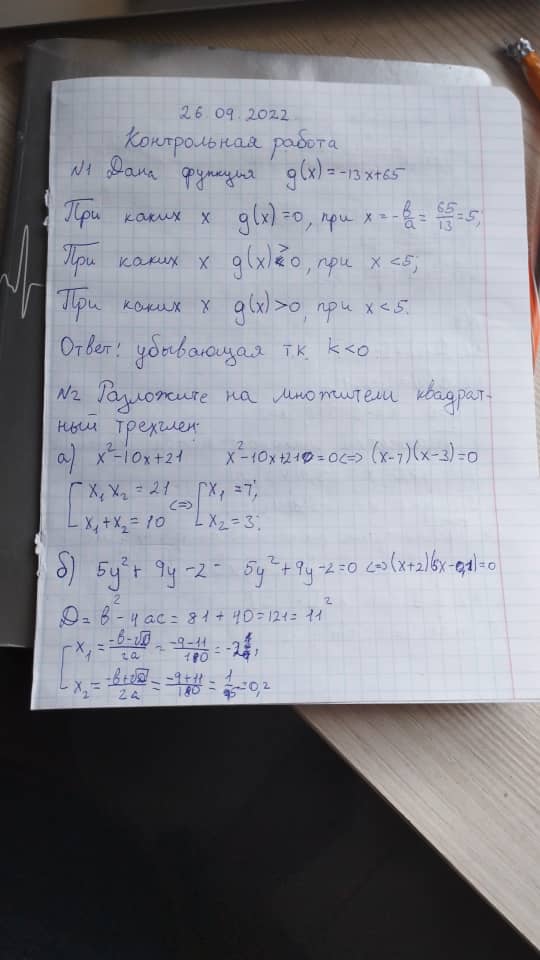 26.09.2022
Контрольная работа
№1 Дана функция g(x)=-13x+65
При каких x g(x)=0, при x=-b/a=65/13=5;
При каких x g(x) 0, при x<5;
При каких x g(x)>0, при x<5.
Ответ: убывающая т.к. k<0
№2 Разложите на множители квадрат-
ный трехчлен
а) x²-10x+21 x²-10x+21=0<=>(x-7)(x-3)=0
[x₁x₂=21 <=> [x₁=7;
[x₁+x₂=10 [x₂=3;
б) 5y²+9y-2- 5y²+9y-2=0<=>(x+2)(5x-)=0
D=b²-4ac=81+40=121=11²
[x₁=(-b-√D)/2a=(-9-11)/10=-2;
[x₂=(-b+√D)/2a=(-9+11)/10=1/5=0,2